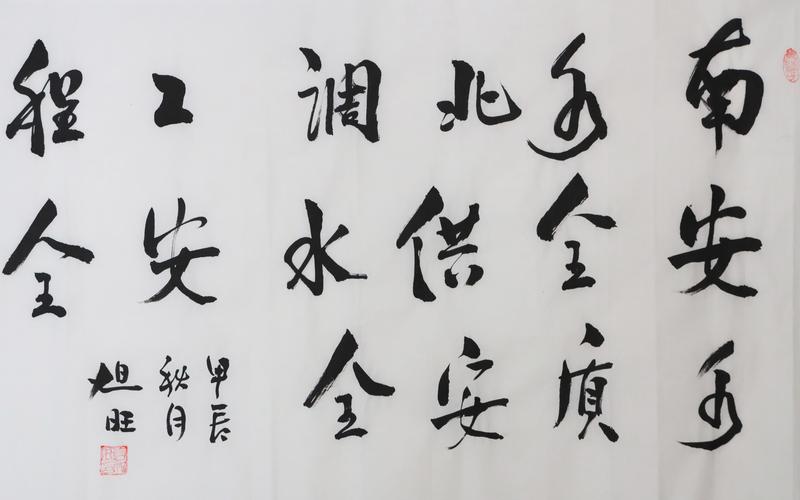 南水北调工程
安全供水安全
水质安全
甲辰
秋月
旭旺